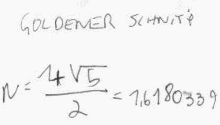 GOLDENER SCHNITT
N = 1+√5 / 2 = 1,6180339